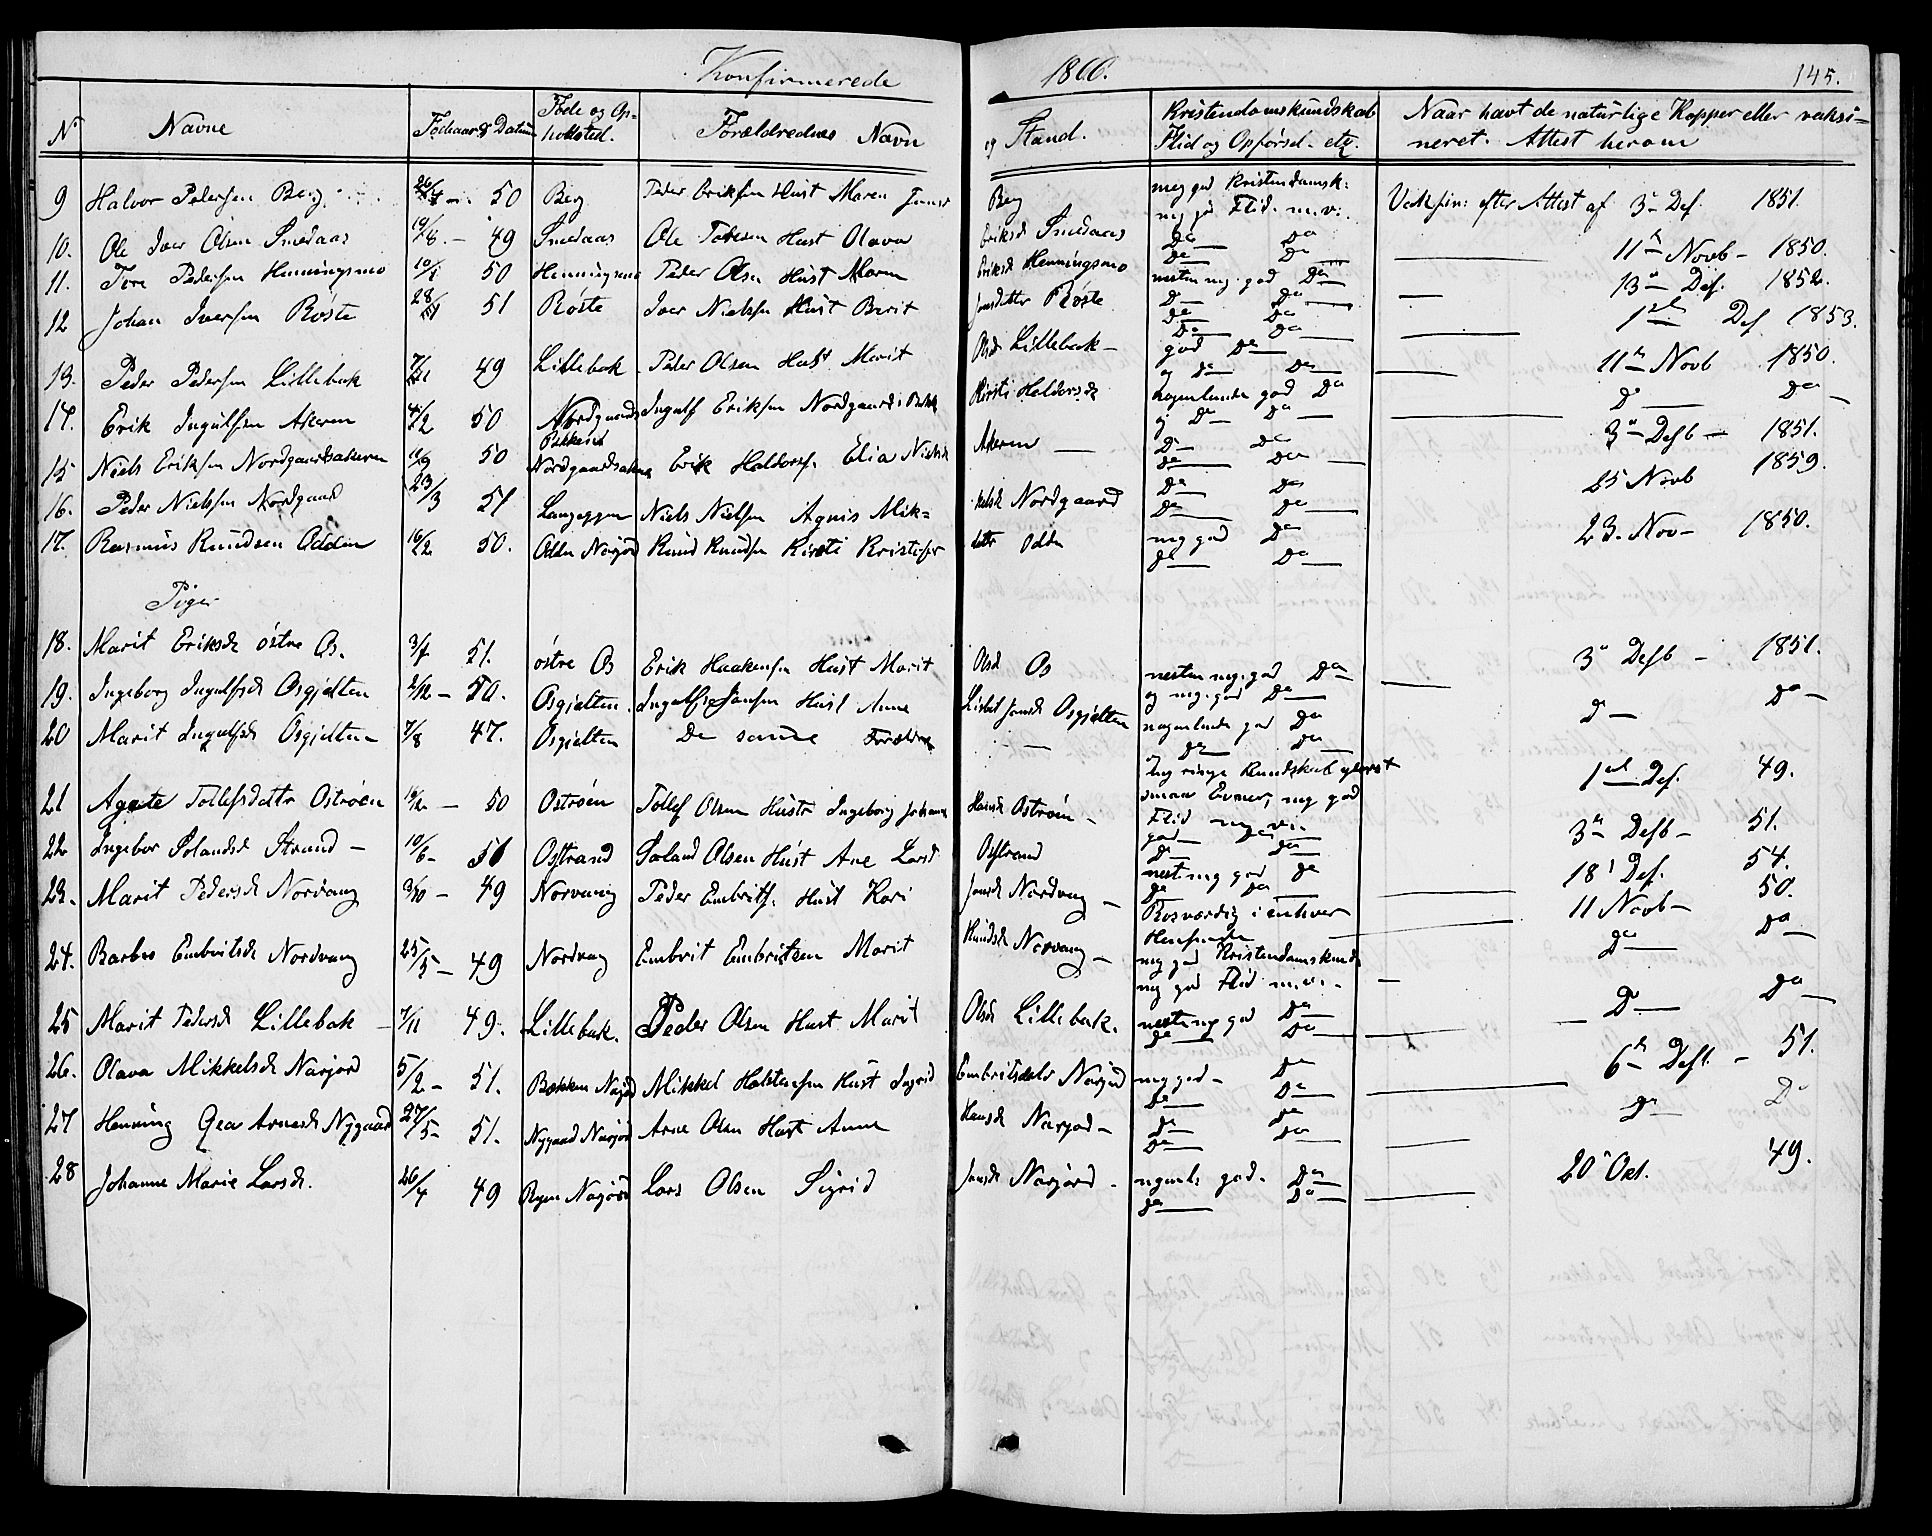 Konfirmerede 1866. 145.
No Navne Fødeaar & Datum Føde og Opholdsted. Forældrednes Navn og Stand. Kristendomskundskab Flid og Opførsel etz. Naar havt de naturlige Kopper eller vaksineret. Attest herom
9 Halvor Pedersen Berg 50 Berg Peder Eriksen Hust Maren Jons Berg meg god Kristendomsk: Vaksin: efter Attest af 3 Des. 1851.
meg god Flid. m.v.
10. Ole Iver Olsen Smedaas 19/8. - 49 Smedaas Ole Hust Olava Eriksd Smedaas Do Do 11 Novb - 1850.
Do Do
11. Tore Pedersen Henningsmo 10/1 50 Henningsmo Peder Olsen Hust Maren Eriksd Henningsmo nesten mg. god Do 13 Des. 1852.
Do Do
12 Johan Iversen Røste 28/ 51 Røste Iver Nielsen Hust Berit Jonsdatter Røste Do Do 1 Des 1853.
Do Do
13. Peder Pedersen Lillebak 7/11 49 Lillebak Peder Olsen Hust Marit Olsd Lillebak - god Do 11 Novb 1850.
og Do Do
14. Erik Ingulfsen Akeren 4/2 50 Nordgaards Bekken Ingulf Eriksen Nordgaards Kirsti Haldorsd nogenlunde god Do D Do
Do Do
15 Niels Eriksen Nordgaardsakeren 50 Nordgaardsakeren Erik Haldors. Elia Nielsd Akeren Do Do 3 Desb - 1851.
Do Do
16. Peder Nielsen Nordgaard 23/3 51 Langeggen Niels Nielsen Agnis Mikkelsd Nordgaard Do Do 25 Novb 1859.
Do Do
17. Rasmus Knudsen Odden 16/2 50. Odden Narjord Knud Knudsen Kirsti Kristofer datter Odden mg god Do 23. Nov - 1850.
Do Do
Piger
18. Marit Eriksd østre Os. 51. østre Os Erik Haakensen Hust Marit Olsd Os nesten mg. god Do 3 Desb - 1851.
19. Ingeborg Ingulfsd Osgjelten 2/12 - 50. Osgjelten. Ingulf Jonsen Hust Anne Lisbet Jonsd Osgjelten og mg. god Do D - Do -
20 Marit Ingulfsd Osgjelten 7/8 47. Osgjelten De samme Forældre nogenlunde god Do
Do Do
21 Agate Tollefsdattr Ostrøen - 50 Ostrøen Tollef Olsen Hustr Ingeborg Johanne Hansd Ostrøen - meg ringe Kundskab 1 Des. 49.
smaa Evner, mg god
Flid mg. v.
22 Ingebor Solandsd Strand - 10/6 - 51 Osstrand Soland Olsen Hust Ane Larsd Osstrand god Do 3 Desb - 51.
Do Do
23. Marit Pedersd Nordvang 3/10 - 49 Norvang Peder Embrits. Hust Kari Jonsd Nordvang - nest mg god Do 18 Des. 54.
Do Do
24. Barbro Embritsd Nordvang 25/5 - 49 Nordvang Embrit Embritsen Marit Knudsd Norvang - Rosværdig i enhver Henseende 11 Novb - 50.
mg god Kristendomskund Do Do
mg god Flid m.v.
25 Marit Pedersd Lillebak 7/11 49. Lillebak. Peder Olsen Hust Marit Olsd Lillebak. nest mg god Do D Do
Do Do
26. Olava Mikkelsd Narjord 5/2 - 51. Bekken Narjord Mikkel Holstensen Hust Ingrid Embritsdatr Narjord mg god - Do 6 Desb - 51.
Do Do
27 Henning Gea Arnesd Nygaard 27/5 - 51. Nygaard Narjord Arne Olsen Hust Anne Hansd Narjord - Do Do D Do
Do Do
28 Johanne Marie Larsd. 26/4 49 Narjord Lars Olsen Sigrid Jonsd Narjord. ngenl. god. Do 20 Okt. 49.
Do Do